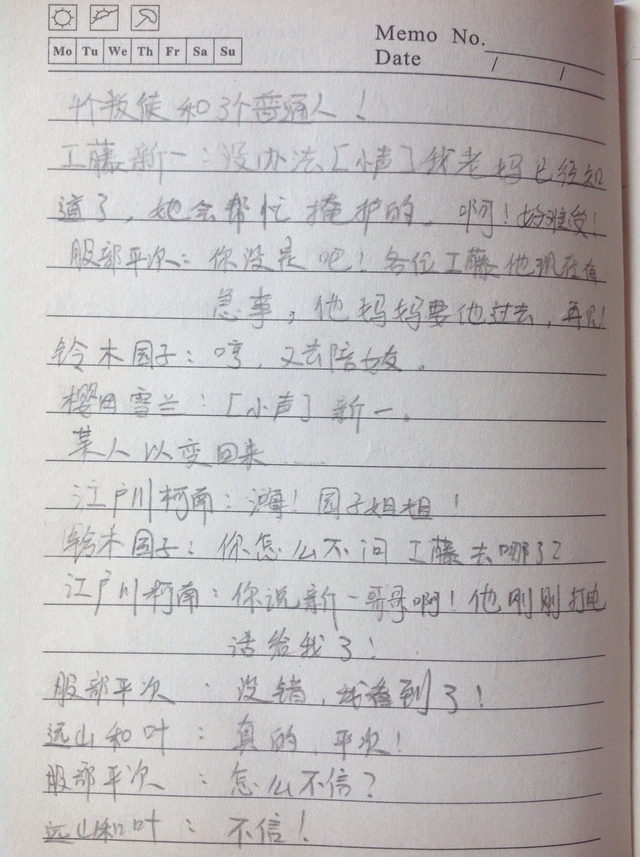 Memo No.
Mo Tu We Th Fr Sa Su
Date / /
4个叛徒和3个普通人！
工藤新一：没办法[小声]我老妈已经知
道了，她会帮忙掩护的。啊！好难受！
服部平次：你没是吧！各位工藤他现在有
急事，他妈妈要他过去，再见！
铃木园子：哼，又去陪女友。
樱田雪兰：[小声]新一。
某人以变回来……
江户川柯南：嗨！园子姐姐！
铃木园子：你怎么不问工藤去哪了？
江户川柯南：你说新一哥哥啊！他刚刚打电
话给我了！
服部平次：没错，我看到了！
远山和叶：真的，平次！
服部平次：怎么不信？
远山和叶：不信！